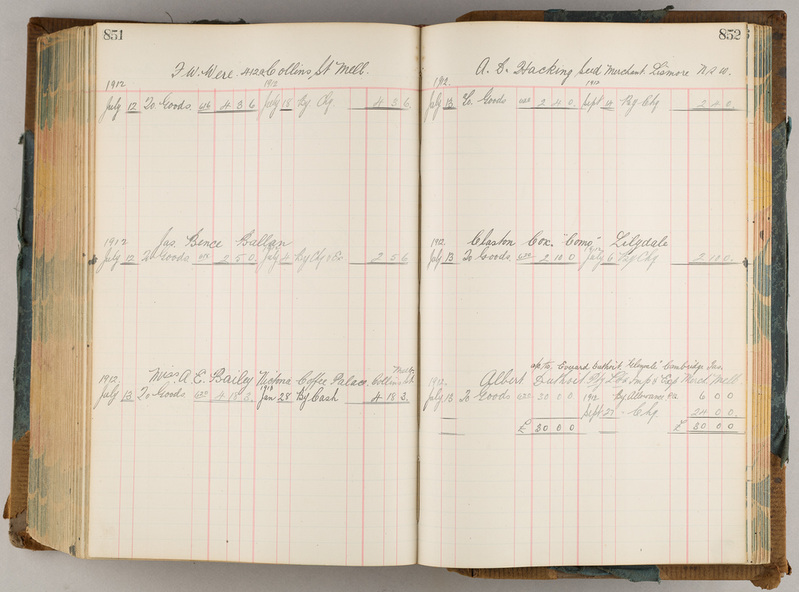 851
F. W. Were. 412 Collins St Melb.
1912 1912
July 12 To Goods 4 3 6 July 18 By Chq 4 3 6
1912 Jas. Bence Ballan
July 12 To Goods 2 5 0 July By Chq 2 5 6
1912 Miss A. E. Bailey Victoria Coffee Palace. Collins St
Melb
July 13 To Goods 632 4 18 3 1913 Jan 28 By Cash 4 18 3
852
A. D. Hacking Seed Merchant Lismore N S W.
1912. 1912
July 13 To Goods 2 4 0 Sept By Chq 2 4 0
1912 Claston Cox. "Como" Lilydale
July 13 To Goods 632 2 10 0 July By Chq 2 10 0
Cambridge
1912. Albert Duthoit Pty Ltd Imp & Exp Melb
July 13 To Goods 632 30 0 0 1912 By Allowance 6 0 0
Sept Chq 24 0 0
£ 30 0 0 £ 30 0 0